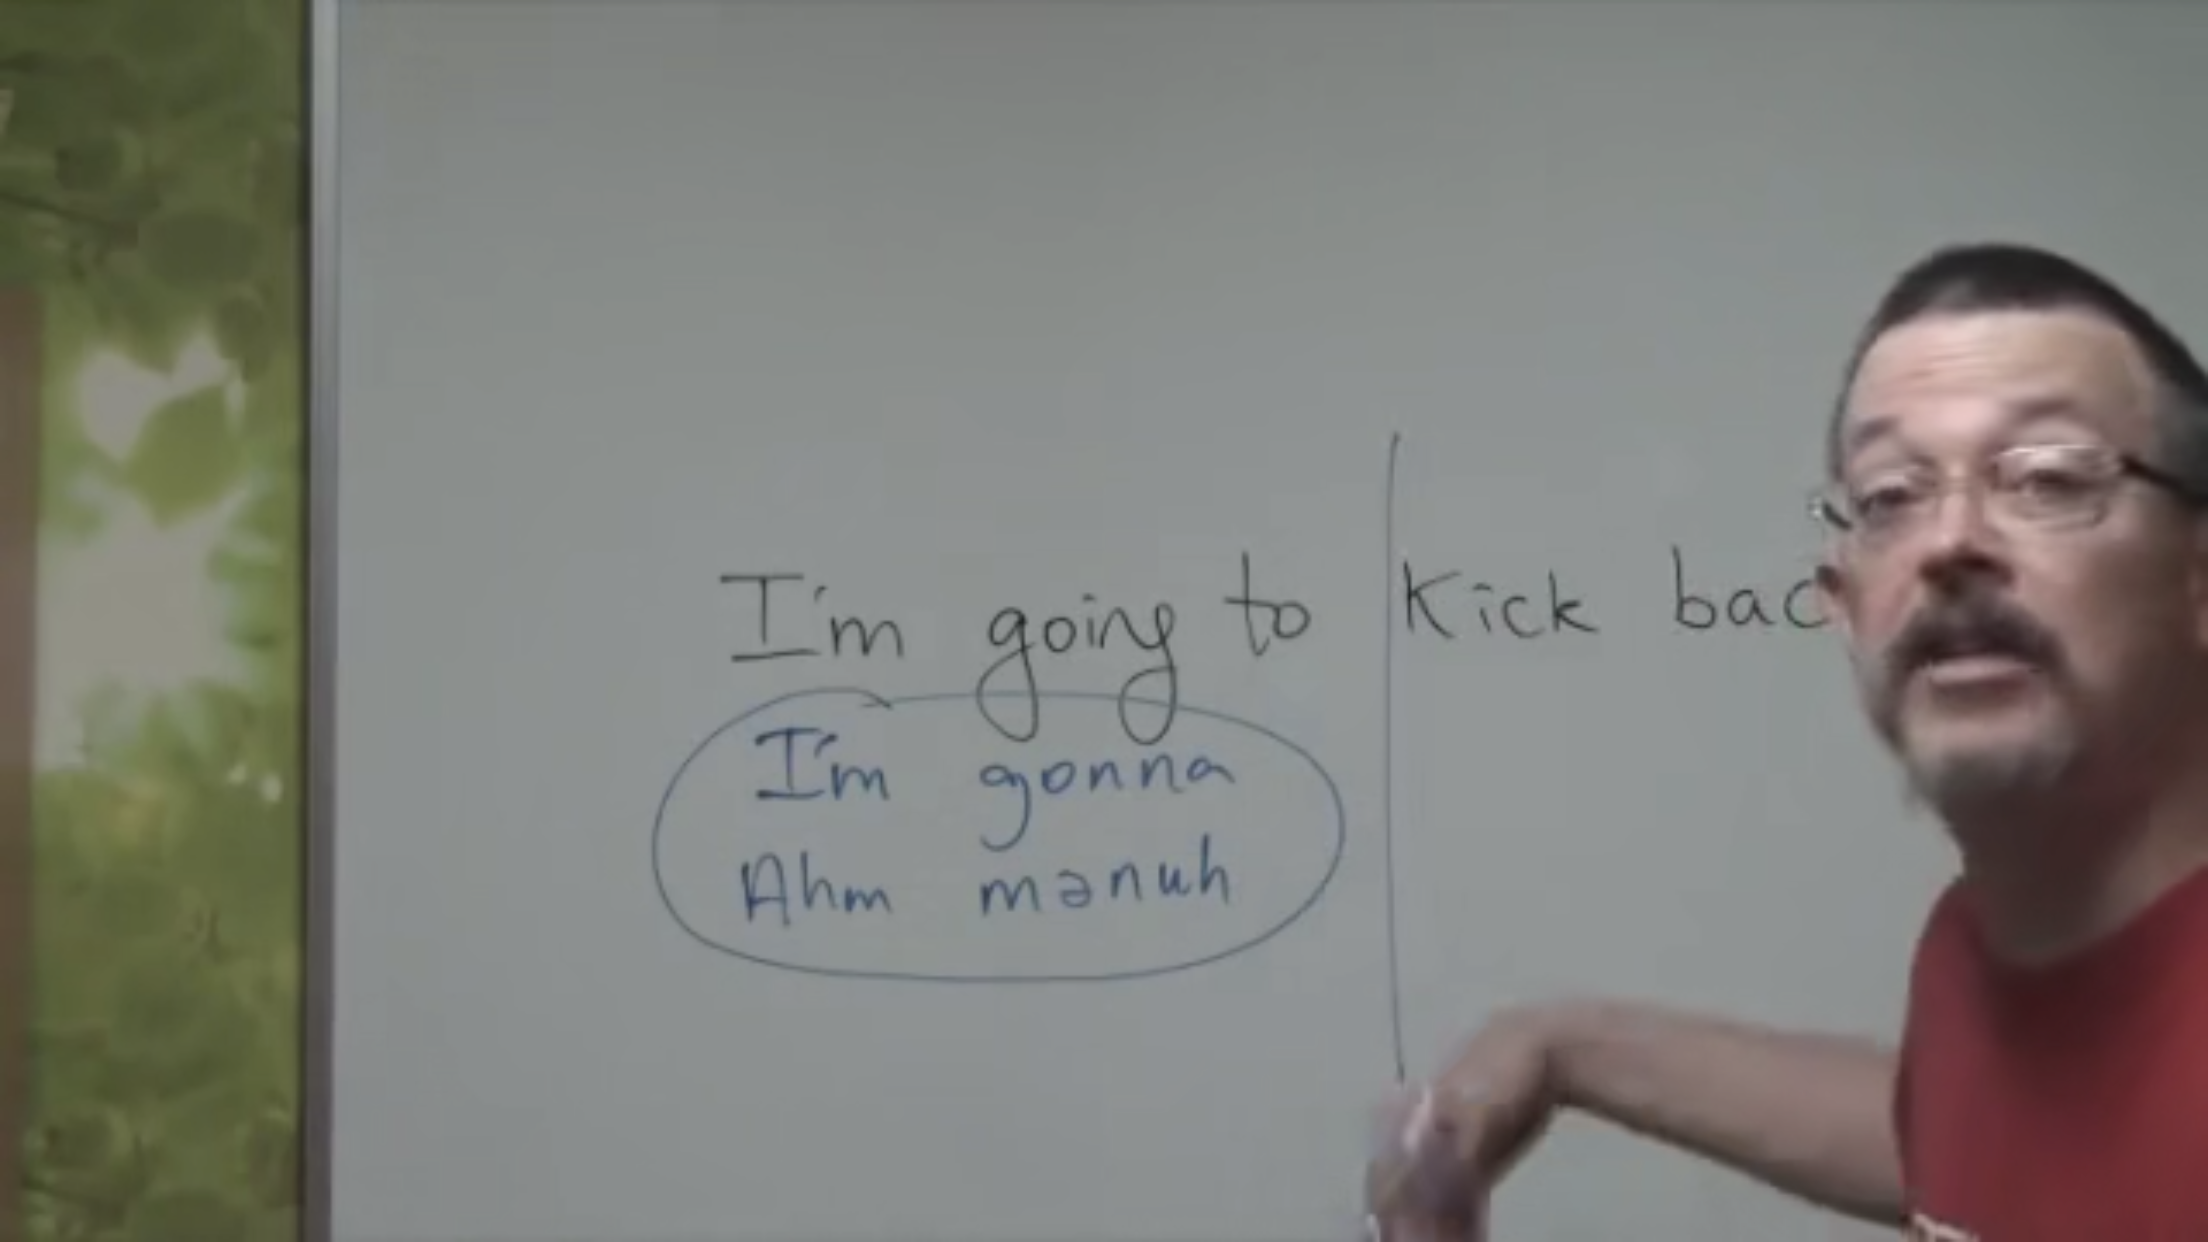 I'm going to Kick bac
I'm gonna
Ahm mənuh